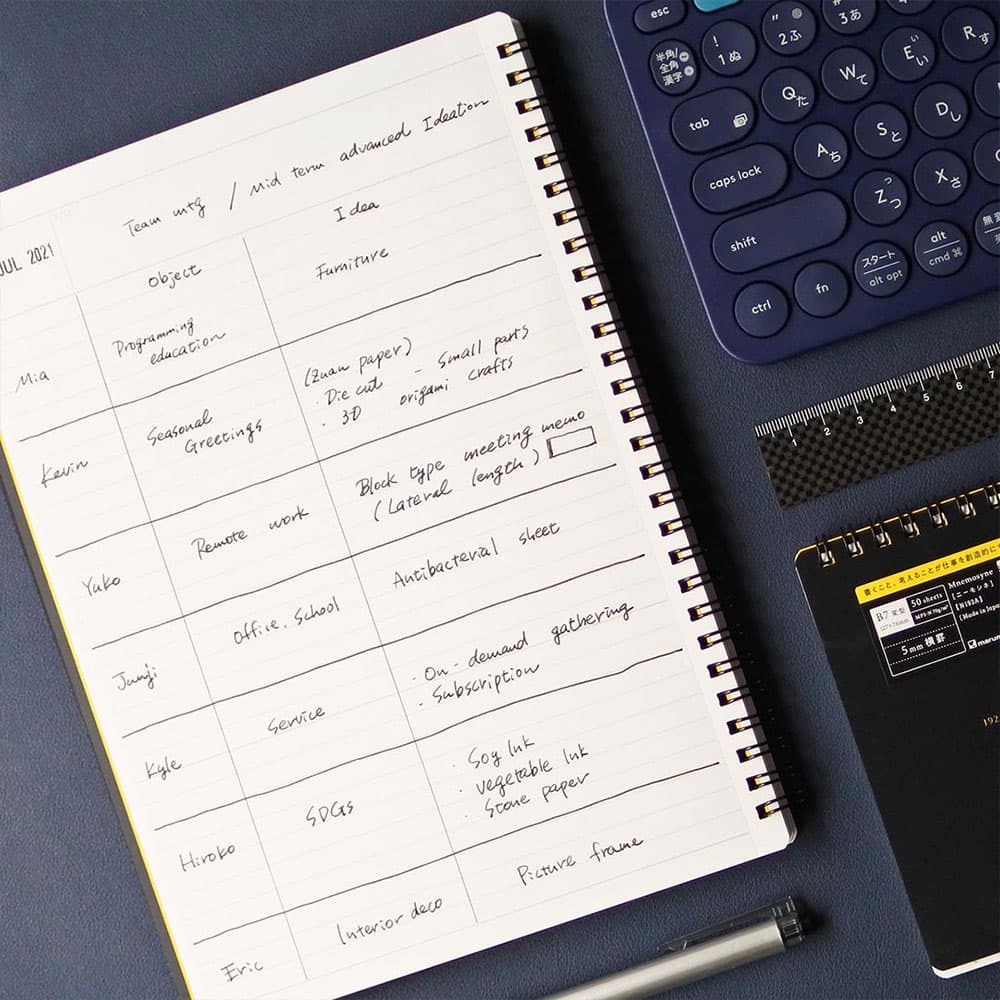 Team mtg / Mid term advanced Ideation
JUL 2021
Object
Idea
Mia
Programming
education
Furniture
Kevin
Seasonal
Greetings
(Zuan paper)
・Die cut - Small parts
・3D origami crafts
Yuko
Remote work
Block type meeting memo
(Lateral length)
Junji
Office. School
Antibacterial sheet
Kyle
Service
・On-demand gathering
・Subscription
Hiroko
SDGs
・Soy Ink
・vegetable Ink
・Stone paper
Eric
Interior deco
Picture frame
esc
半角/
全角
漢字
! 1 ぬ
" 2 ふ
3 あ
tab
Q た
W て
E い ぃ
R す
caps lock
A ち
S と
D し
shift
Z つ っ
X さ
ctrl
fn
スタート
alt opt
alt
cmd ⌘
無変
1 2 3 4 5 6 7
書くこと、考えることが仕事を創造的に
B7 変型
50 sheets
5mm 横罫
Mnemosyne
[ニーモシネ]
[N192A]
[Made in Jap
marum
192